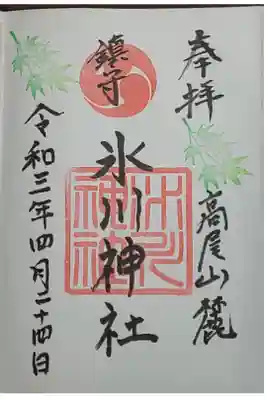 奉拝
高尾山麓
鎮守
氷川神社
氷川神社
令和三年四月二十四日